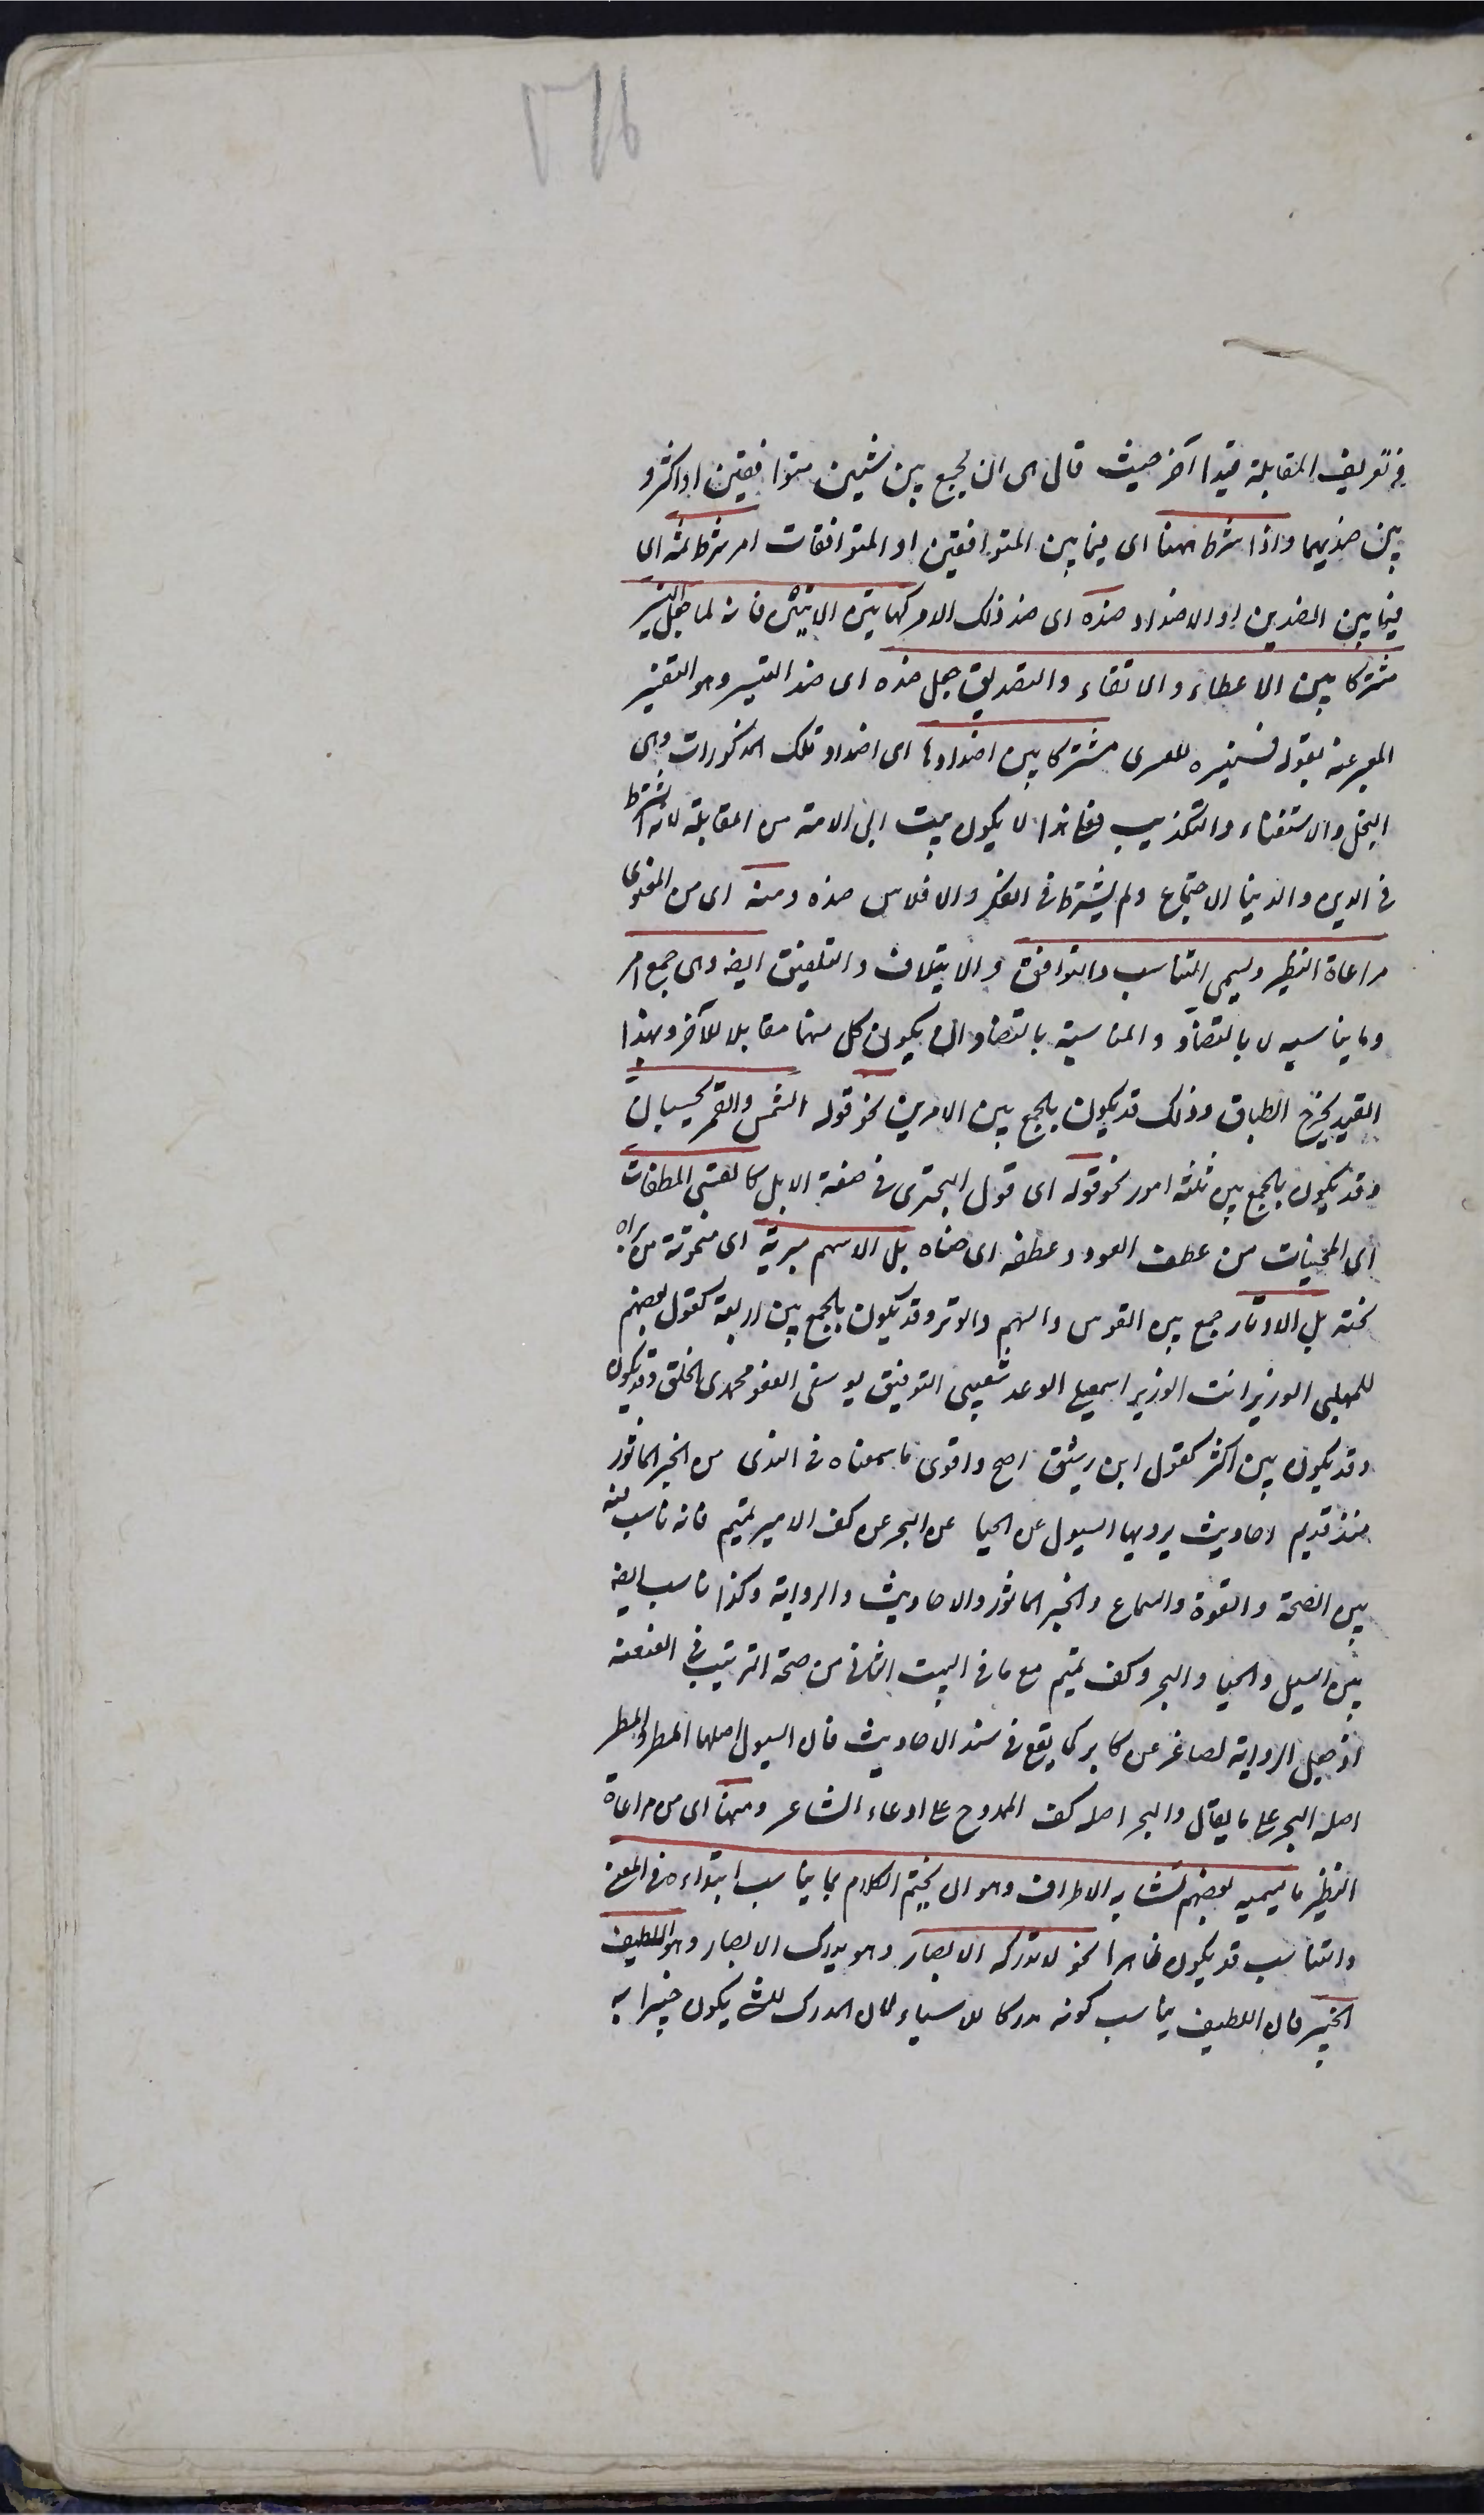 في تعريف المقابلة قيدا آخر حيث قال هي ان يجمع بين شيئين متوافقين او اكثر و
بين ضديهما واذا شرط ههنا اى فيما بين المتوافقين او المتوافقات امر شرط ثمه اى
فيما بين الضدين او الاضداد ضده اى ضد ذلك الامر كهاتين الايتين فانه لما جعل التيسير
مشتركا بين الاعطاء والاتقاء والتصديق جعل ضده اى ضد التيسير وهو التعسير
المعبر عنه بقوله فسنيسره للعسرى مشتركا بين اضدادها اى اضداد تلك المذكورات وهى
البخل والاستغناء والتكذيب فعلى هذا لا يكون بيت ابى دلامة من المقابلة لانه اشترط
فى الدين والدنيا الاجتماع ولم يشترط فى الكفر والافلاس ضده ومنه اى من المعنوى
مراعاة النظير ويسمى التناسب والتوافق والايتلاف والتلفيق ايضا وهى جمع امر
وما يناسبه لا بالتضاد والمناسبة بالتضاد ان يكون كل منهما مقابلا للآخر وبهذا
القيد يخرج الطباق وذلك قد يكون بالجمع بين الامرين نحو قوله الشمس والقمر بحسبان
وقد يكون بالجمع بين ثلثة امور نحو قوله اى قول البحترى فى صفة الابل كالقسى المعطفات
اى المحنيات من عطف العود وعطفه اى حناه بل الاسهم مبرية اى منحوتة من براه
نحته بل الاوتار جمع بين القوس والسهم والوتر وقد يكون بالجمع بين اربعة كقول بعضهم
للمهلبى الوزير انت الوزير اسمعيلى الوعد شعيبى التوفيق يوسفى العفو محمدى الخلق وقد يكون
وقد يكون بين اكثر كقول ابن رشيق اصح واقوى ما سمعناه فى الندى من الخبر المأثور
منذ قديم احاديث يرويها السيول عن الحيا عن البحر عن كف الامير تميم فانه ناسب فيه
بين الصحة والقوة والسماع والخبر المأثور والاحاديث والرواية وكذا ناسب ايضا
بين السيل والحيا والبحر وكف تميم مع ما فى البيت الثانى من صحة الترتيب فى العنعنة
اذ جعل الرواية لصاغر عن كابر كما يقع فى سند الاحاديث فان السيول اصلها المطر والمطر
اصله البحر على ما يقال والبحر اصله كف الممدوح على ادعاء الشاعر ومنها اى من مراعاة
النظير ما يسميه بعضهم تشابه الاطراف وهو ان يختم الكلام بما يناسب ابتداءه فى المعنى
والتناسب قد يكون ظاهرا نحو لا تدركه الابصار وهو يدرك الابصار وهو اللطيف
الخبير فان اللطيف يناسب كونه مدركا للاشياء لان المدرك للشئ يكون خبيرا به